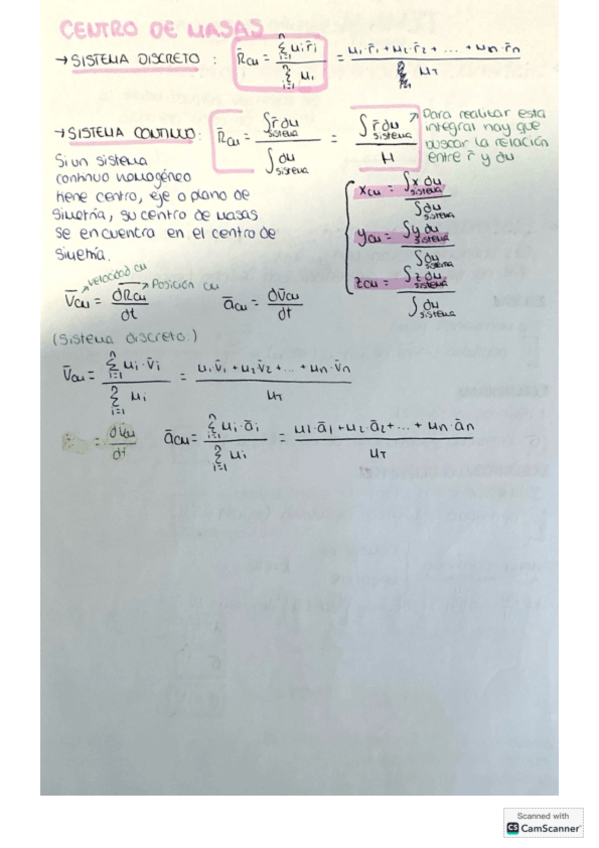 CENTRO DE MASAS
→ SISTEMA DISCRETO : R̄cm = Σ(i=1→n) mi r̄i / Σ(i=1→n) mi = m1·r̄1 + m2·r̄2 + ... + mn·r̄n / mT
→ SISTEMA CONTINUO: R̄cm = ∫sistema r̄ dm / ∫sistema dm = ∫sistema r̄ dm / M
Para realizar esta
integral hay que
buscar la relación
entre r̄ y dm
Si un sistema
continuo homogéneo
tiene centro, eje o plano de
simetría, su centro de masas
se encuentra en el centro de
simetría.
xcm = ∫sistema x dm / ∫sistema dm
ycm = ∫sistema y dm / ∫sistema dm
zcm = ∫sistema z dm / ∫sistema dm
velocidad cm
Posición cm
V̄cm = dR̄cm / dt
ācm = dV̄cm / dt
(Sistema discreto:)
V̄cm = Σ(i=1→n) mi·v̄i / Σ(i=1→n) mi = m1 v̄1 + m2 v̄2 + ... + mn·v̄n / mT
= dV̄cm / dt
ācm = Σ(i=1→n) mi·āi / Σ(i=1→n) mi = m1·ā1 + m2·ā2 + ... + mn·ān / mT
Scanned with
CS CamScanner